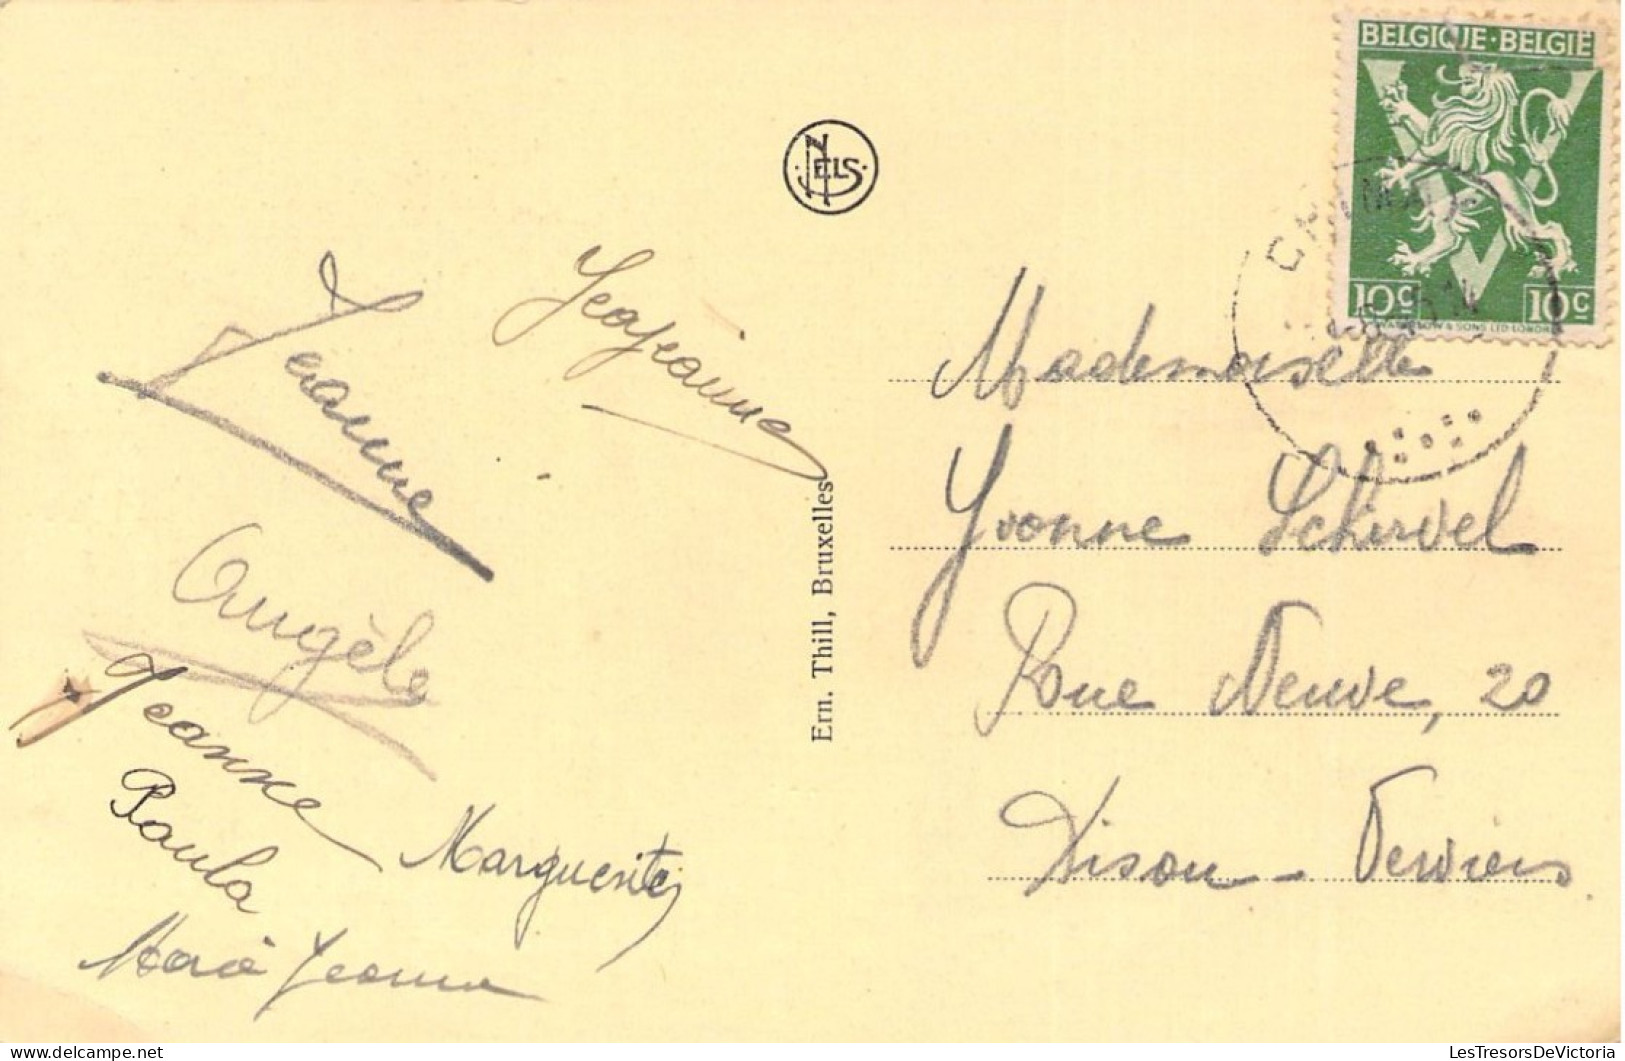 BELGIQUE·BELGIË
10c 10c
NELS
Jeanne
Angèle
Jeanne
Paula
Marguerite
Maria Jeanne
Ern. Thill, Bruxelles
Mademoiselle
Yvonne
Rue Neuve, 20
Dison - Verviers
LesTresorsDeVictoria